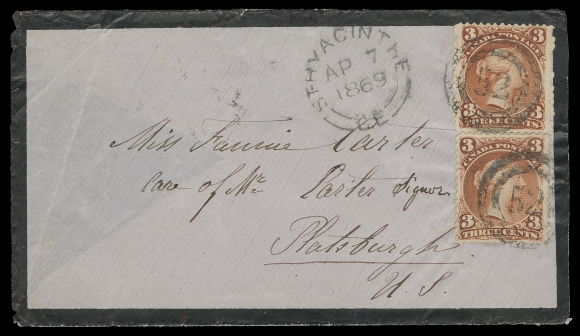 ST HYACINTHE
AP 7
1869
C.E
3 CANADA POSTAGE 3
3 THREE CENTS 3
3 CANADA POSTAGE 3
3 THREE CENTS 3
Miss Fannie Carter
Care of Mr. Carter
Platsburgh
U.S.